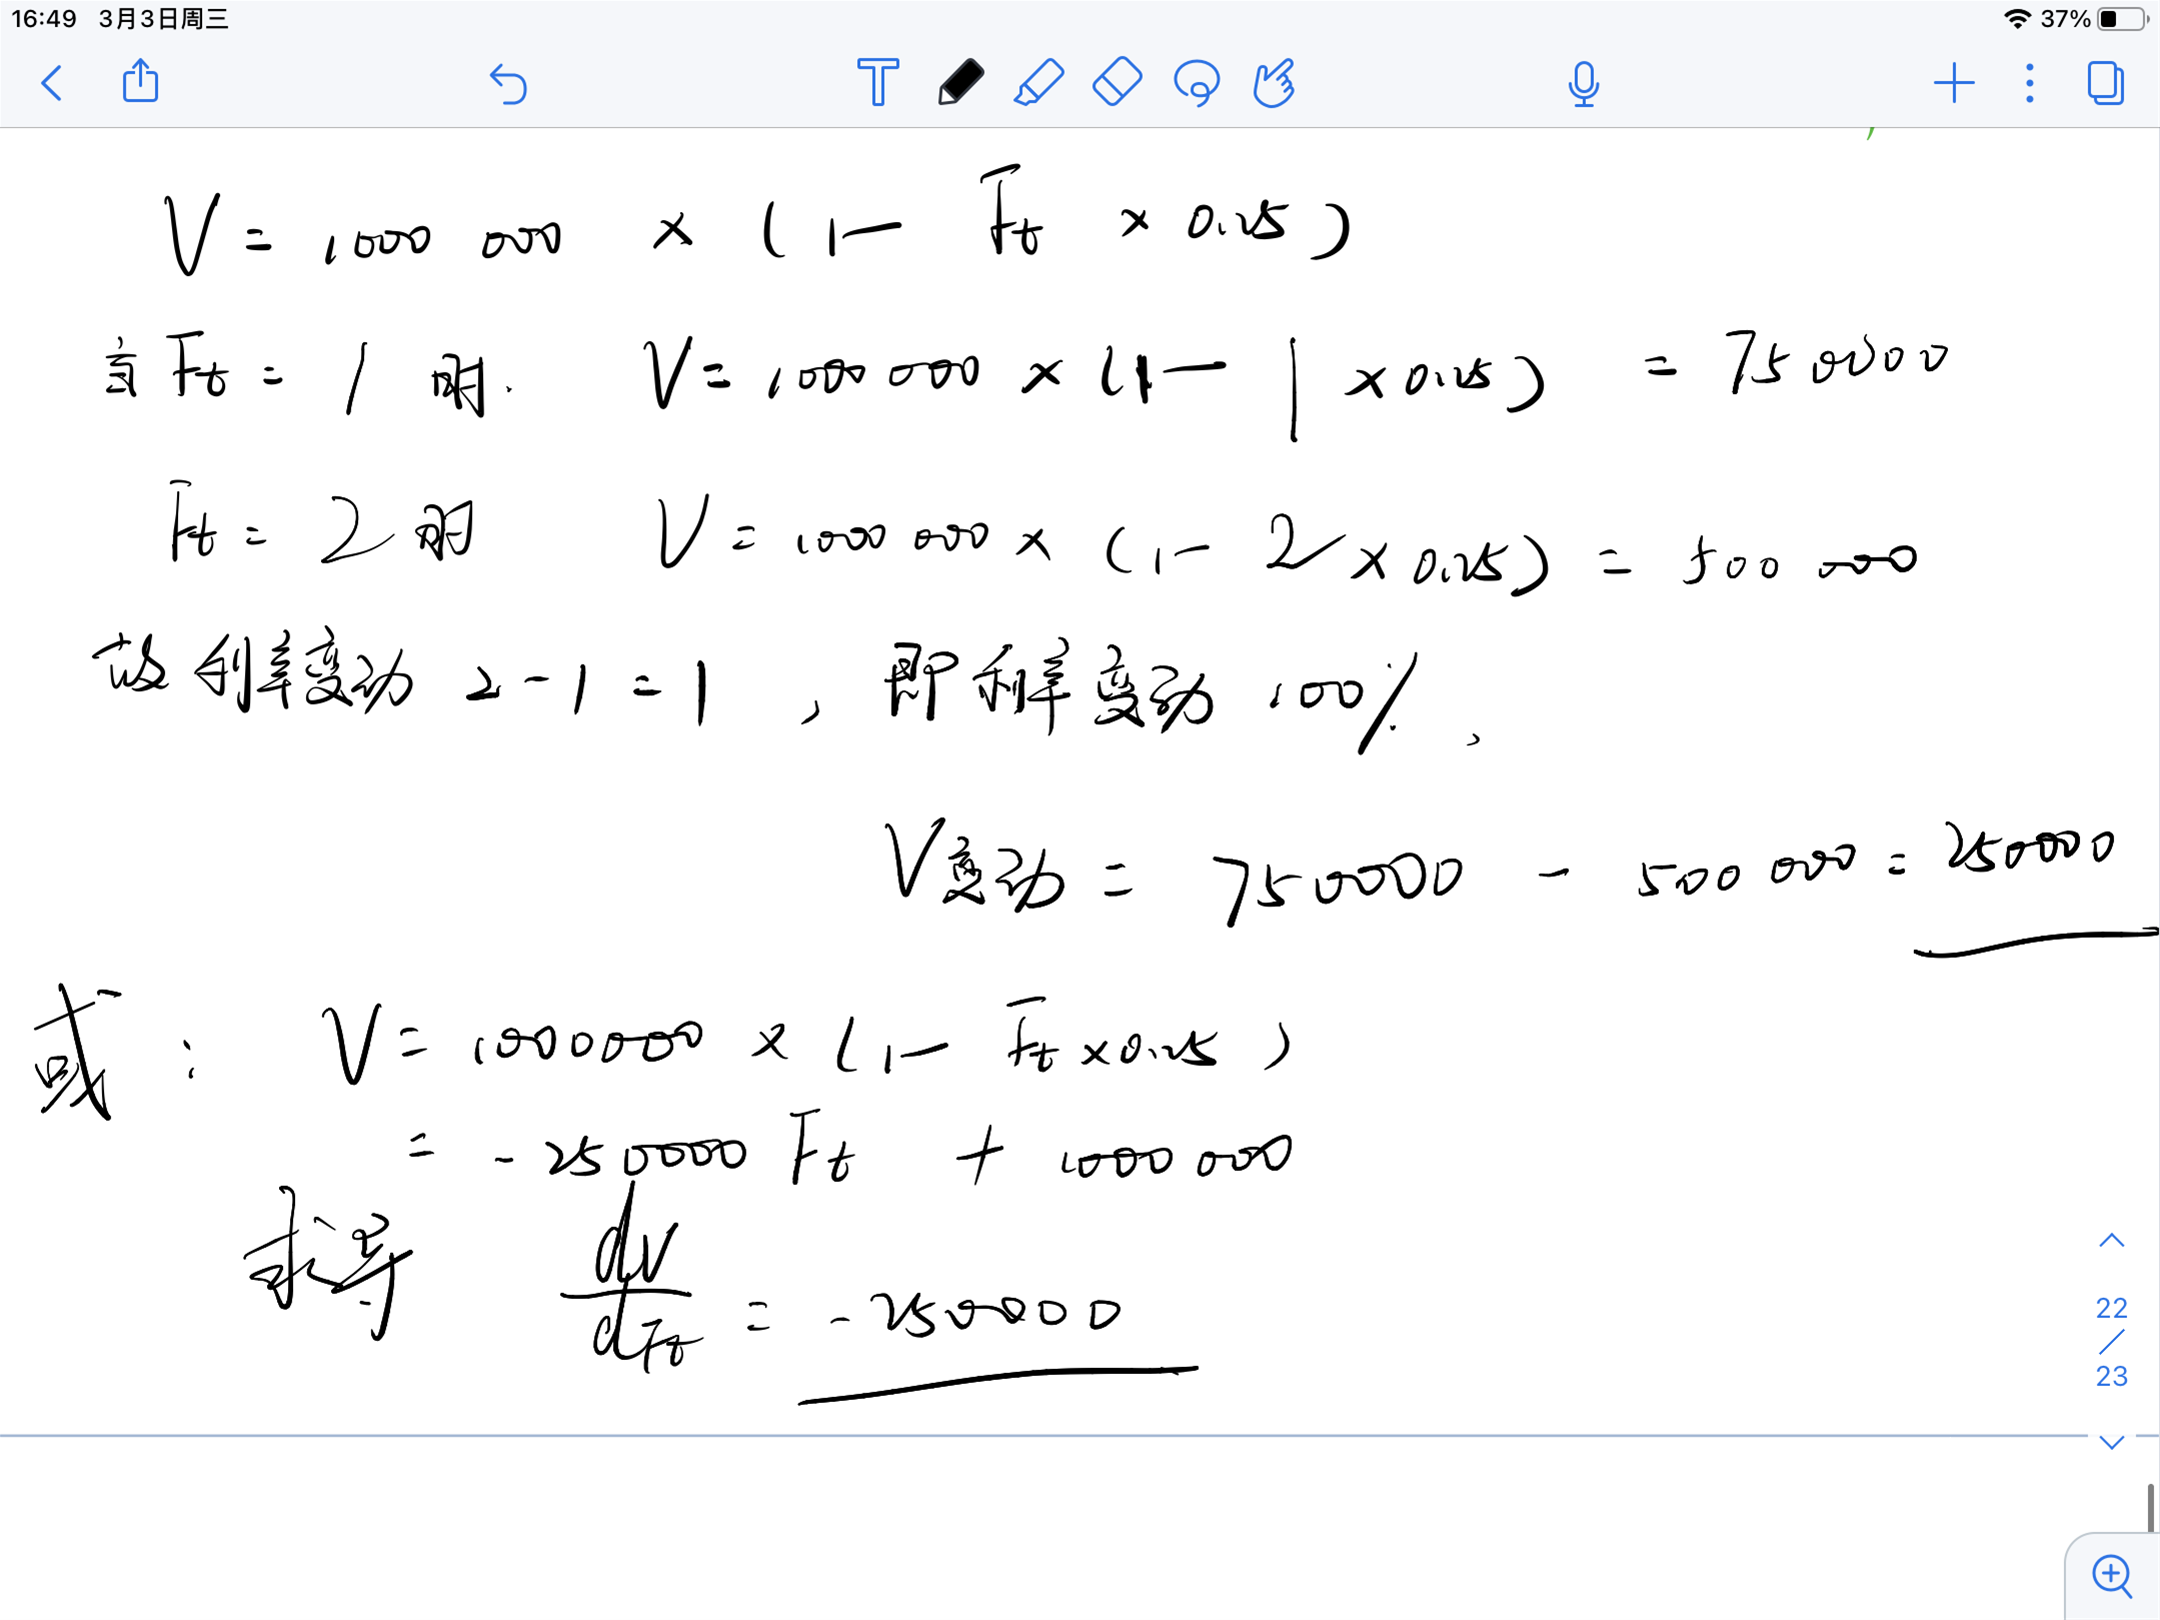 16:49 3月3日周三 37%
V = 1000 000 × (1 - Ft × 0.25)
当 Ft = 1 时. V = 1000 000 × (1 - 1 × 0.25) = 750000
Ft = 2 时 V = 1000 000 × (1 - 2 × 0.25) = 500 000
故利率变动 2-1=1 , 即利率变动 100% ,
V变动 = 750000 - 500 000 = 250000
或: V = 1000000 × (1 - Ft × 0.25)
= -250000 Ft + 1000 000
求导 dV/dFt = -250000
22
/
23